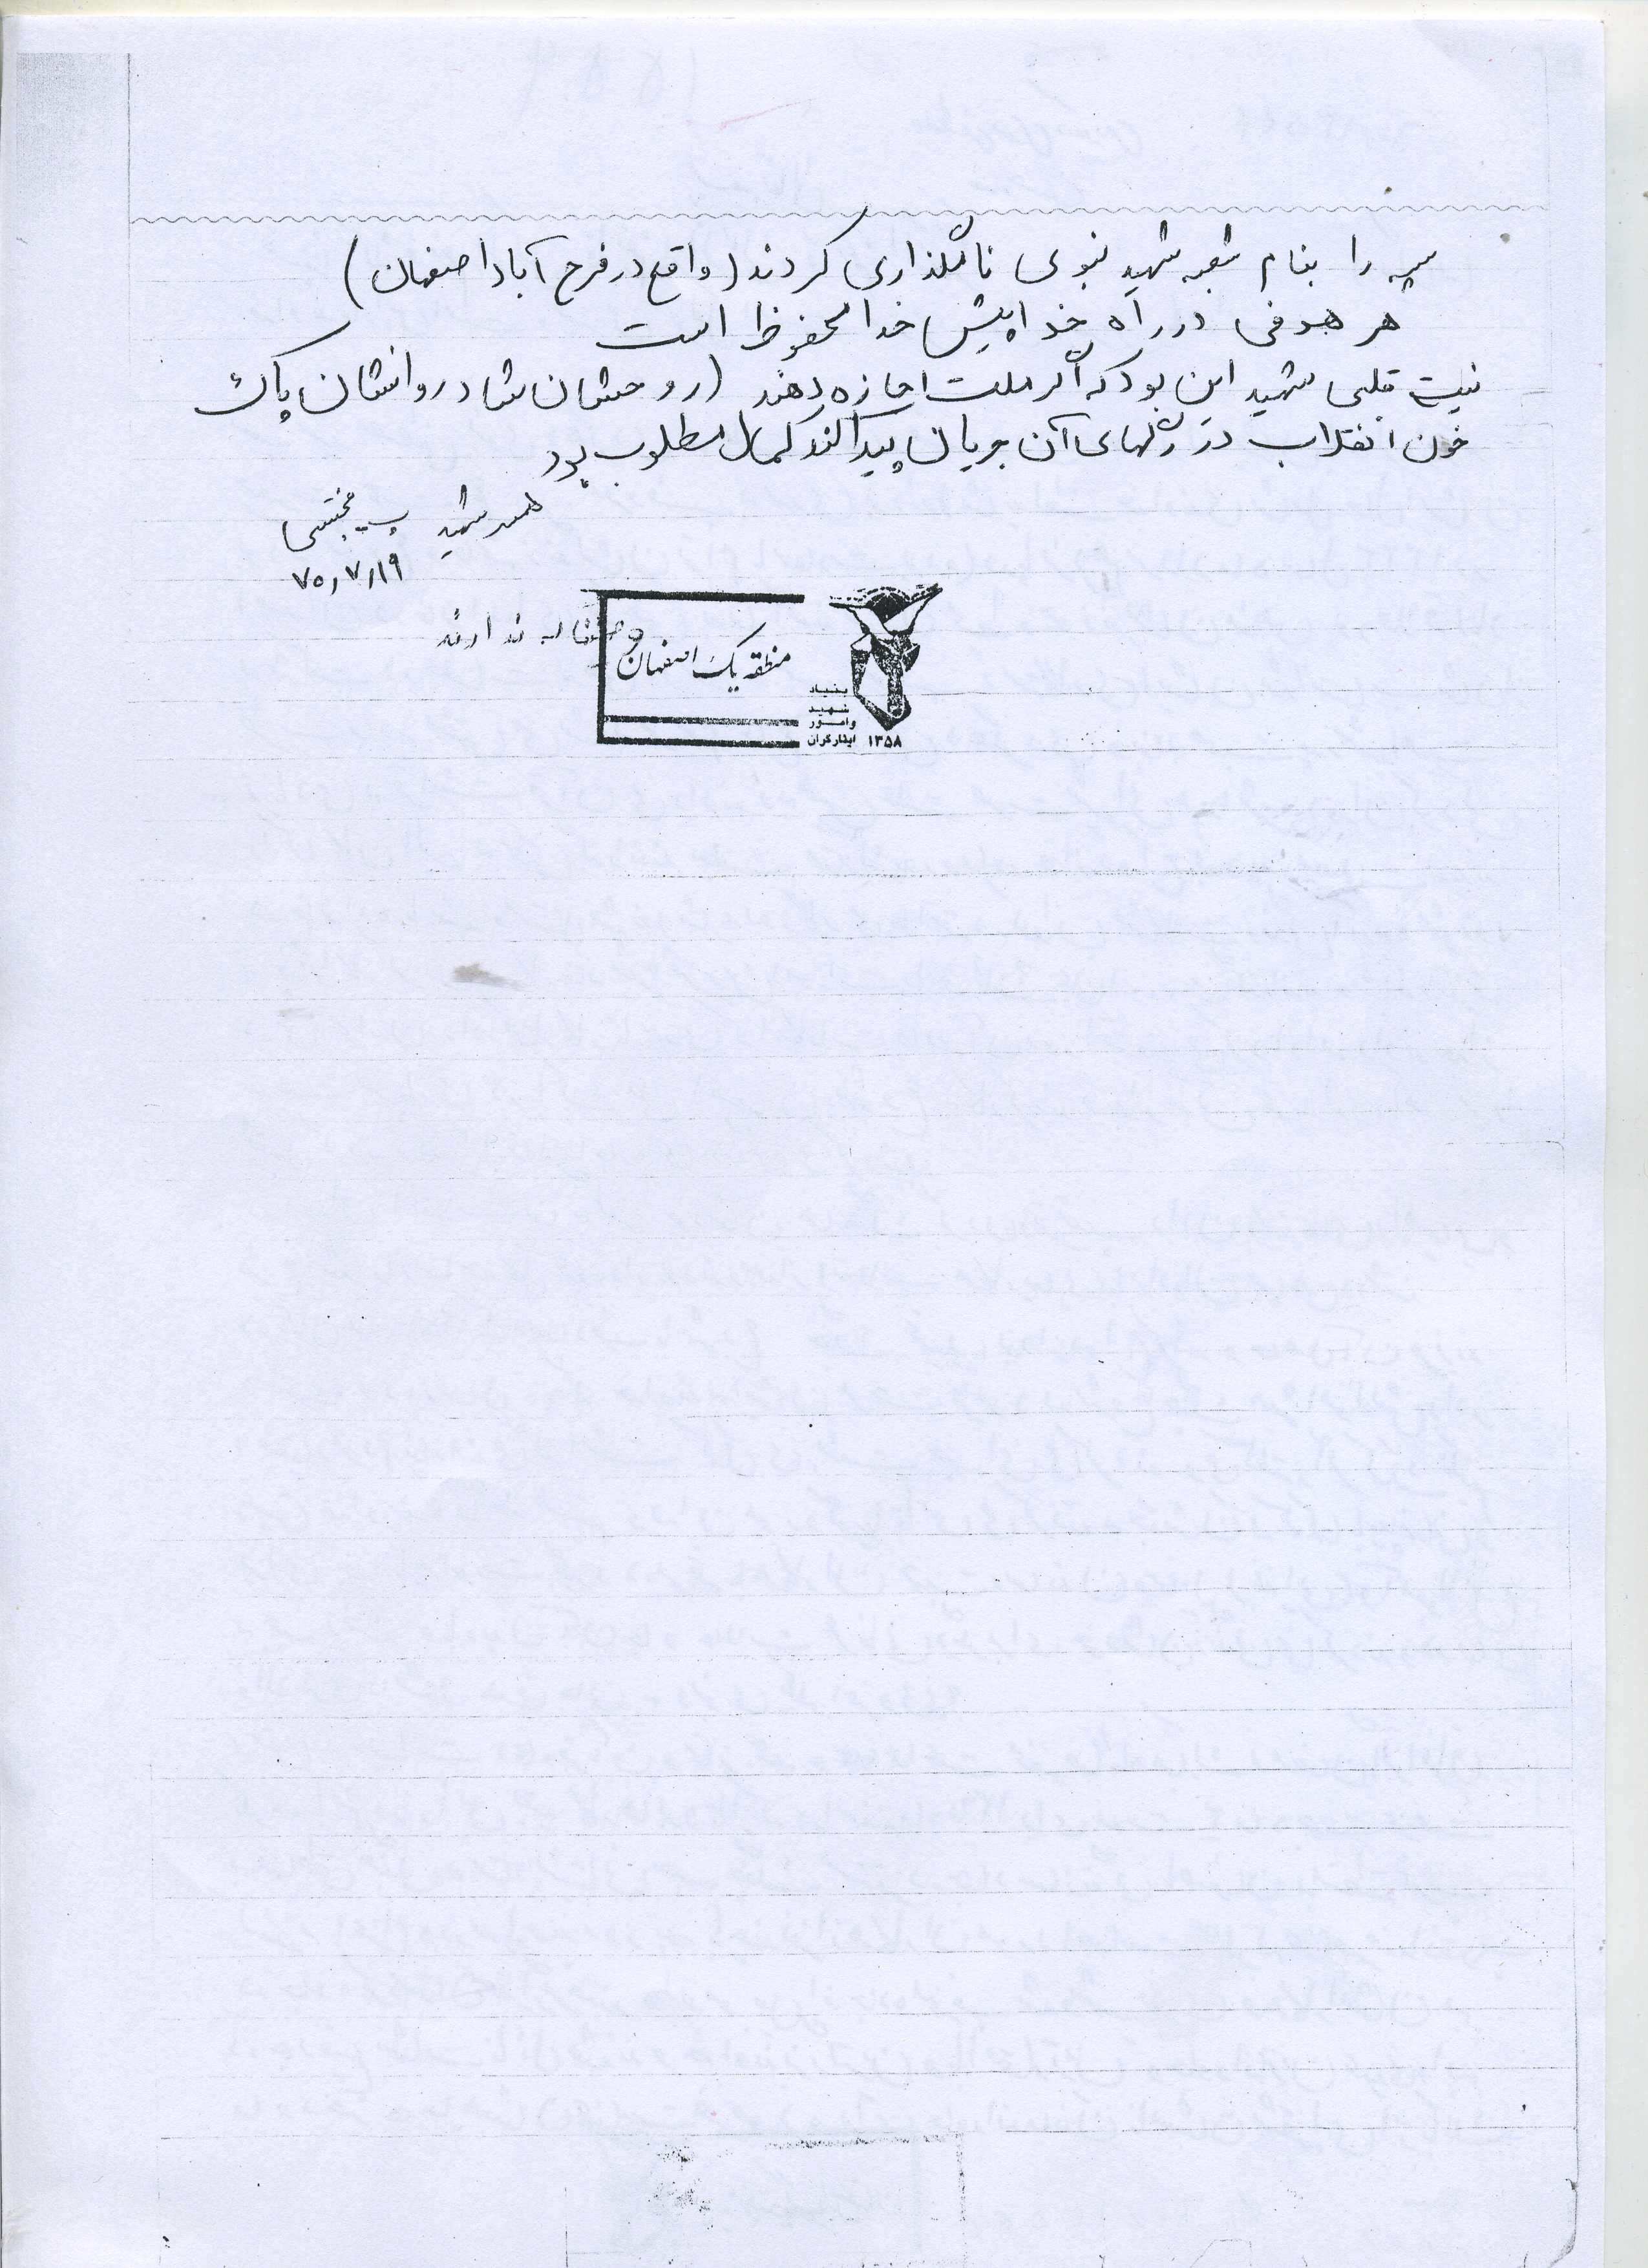 سپه را بنام شعبه شهید نبوی نامگذاری کردند (واقع در فرح آباد اصفهان)
هر هدفی در راه خدا پیش خدا محفوظ است
نیت قلبی شهید این بود که اگر ملت اجازه دهند (روحشان شاد روانشان پاک
خون انقلاب در رگهای آن جریان پیدا کند کمال مطلوب بود
همسر شهید مجتبی
۷۵٫۷٫۱۹
وصیتنامه ندارند
منطقه یک اصفهان
بنیاد
شهید
وامور
ایثارگران ۱۳۵۸